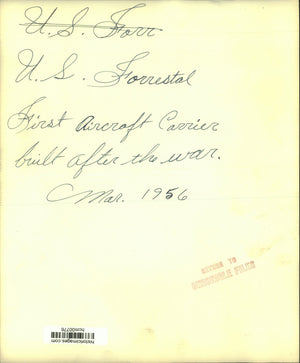 U.S. Forr
U.S. Forrestal
First Aircraft Carrier
built after the war.
Mar. 1956
RETURN TO
FILES
historicimages.com